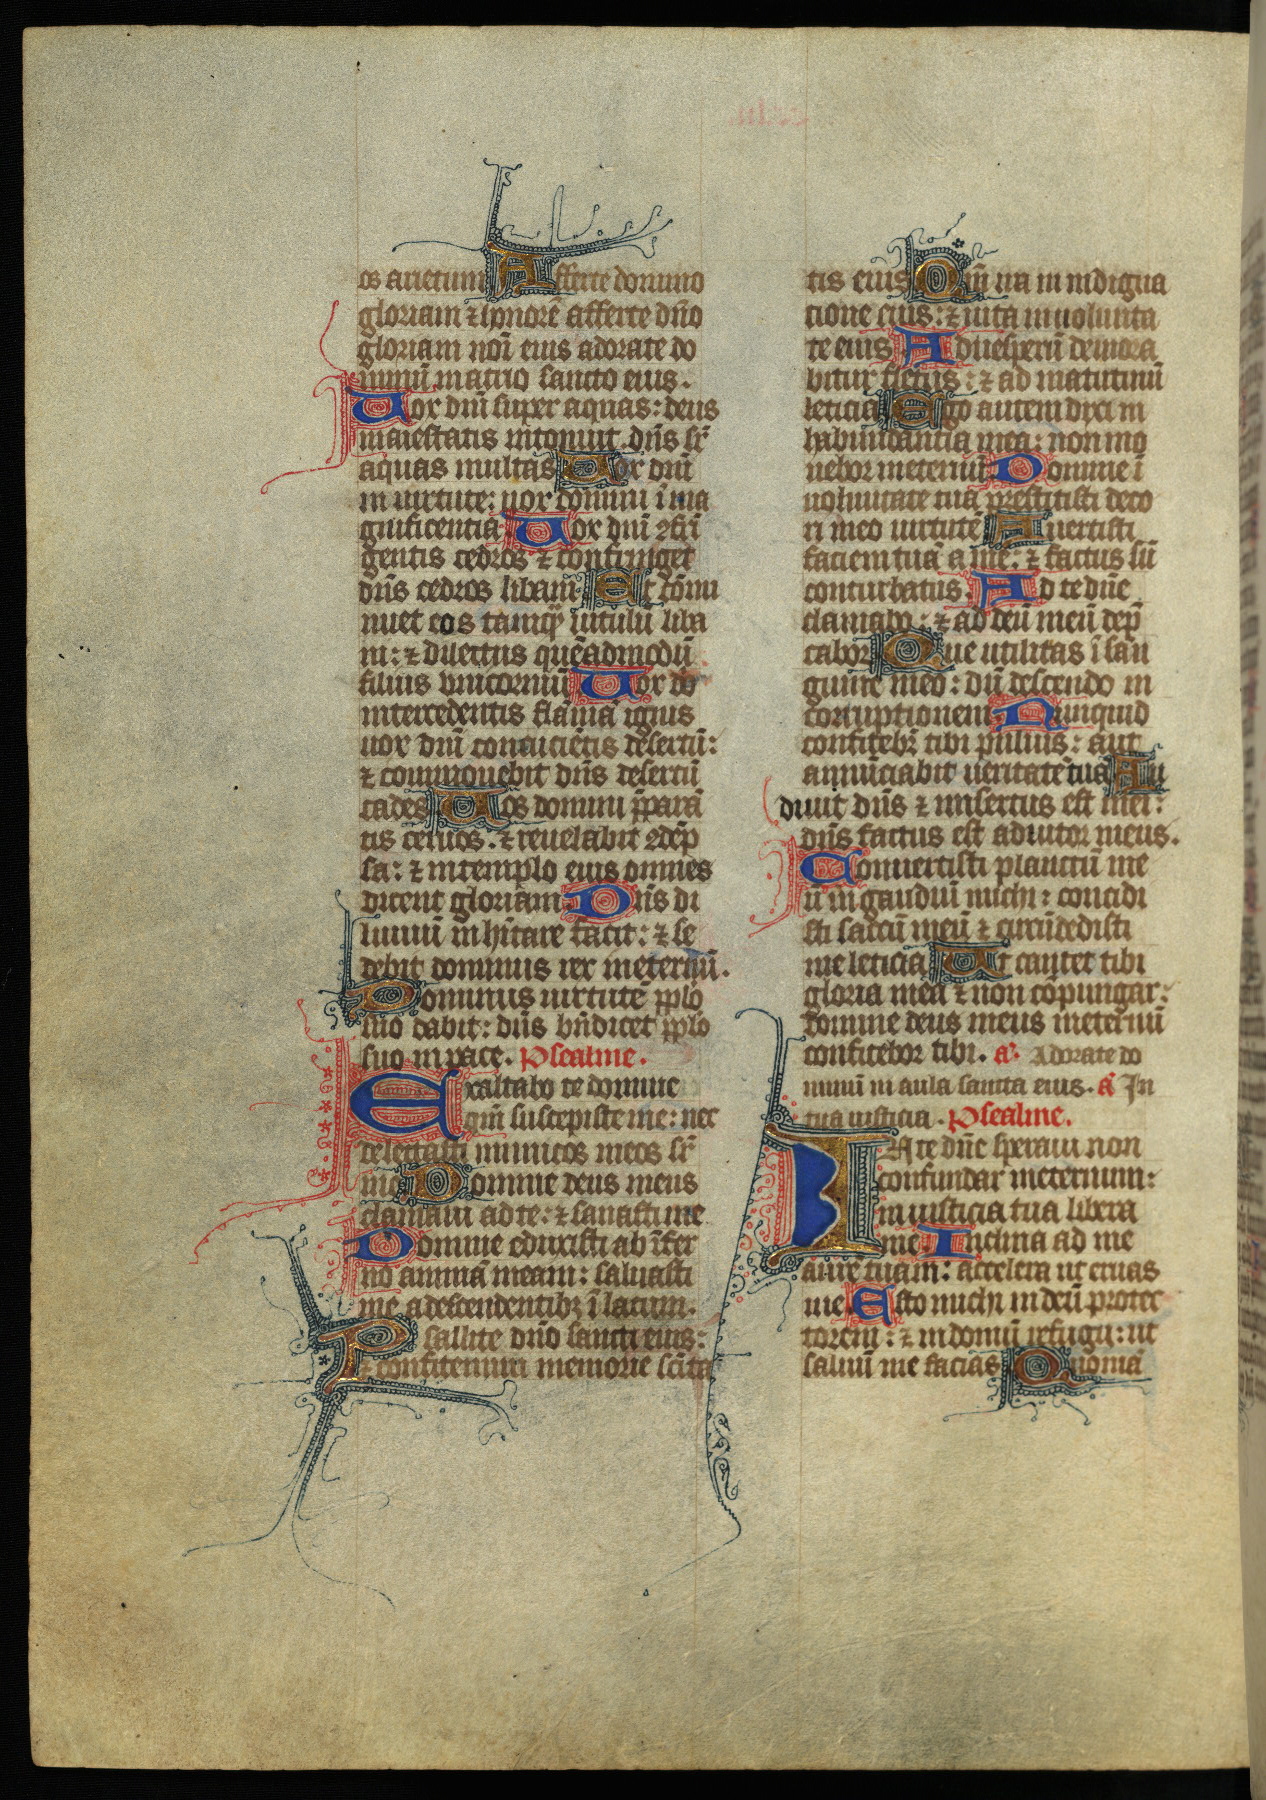 os arietum Afferte domino
gloriam ⁊ honorē afferte dn̄o
gloriam noī eius adorate do
minū in atrio sancto eius.
Uox dnī super aquas: deus
maiestatis intonuit dn̄s sr̄
aquas multas Uox dnī
in uirtute: uox domini ī ma
gnificentia Uox dnī ꝯfrī
gentis cedros ⁊ confringet
dn̄s cedros libani Et cōmi
nuet eos tamqͣ uitulū liba
ni: ⁊ dilectus quēadmodū
filius unicorniū Uox do
intercedentis flāmā ignis
uox dnī concuciētis desertū:
⁊ commouebit dn̄s desertū
cades Uox domini p̄parā
tis ceruos. ⁊ reuelabit ꝯdēp
sa: ⁊ in templo eius omnes
dicent gloriam Dn̄s di
luuiū inhītare facit: ⁊ se
debit dominus rex in eternū.
Dominus uirtutē pp̄lo
suo dabit: dn̄s bn̄dicet pp̄lo
suo in pace. Psealme.
Exaltabo te domine
qm̄ suscepiste me: nec
delectasti inimicos meos sr̄
me Domine deus meus
clamaui ad te: ⁊ sanasti me
Domine eduxisti ab īfer
no animā meam: saluasti
me a descendentibꝫ ī lacum.
Psallite dn̄o sancti eius:
⁊ confitemini memorie scīta
tis eius Qm̄ ira in indigna
tione eius: ⁊ uita in uolunta
te eius Ad uesperū demora
bitur fletus: ⁊ ad matutinū
leticia Ego autem dixi in
habundantia mea: non mo
uebor in eternū Domine ī
uoluntate tua prestitisti deco
ri meo uirtutē Auertisti
faciem tuā a me: ⁊ factus sū
conturbatus Ad te dn̄e
clamabo: ⁊ ad deū meū dep̄
cabor Que utilitas ī san
guine meo: dū descendo in
corruptionem Nunquid
confitebr̄ tibi puluis: aut
annūciabit ueritatē tuā Au
diuit dn̄s ⁊ misertus est mei:
dn̄s factus est adiutor meus.
Conuertisti planctū me
ū in gaudiū michi: concidi
sti saccū meū ⁊ circūdedisti
me leticia Ut cantet tibi
gloria mea ⁊ non cōpungar:
domine deus meus in eternū
confitebor tibi. a. Adorate do
minū in aula sancta eius. a In
tua iusticia. Psealme.
IN te dn̄e speraui non
confundar in eternum:
in iusticia tua libera
me Inclina ad me
aurē tuam: accelera ut eruas
me Esto michi in deū protec
torem: ⁊ in domū refugii: ut
saluū me facias Quoniā